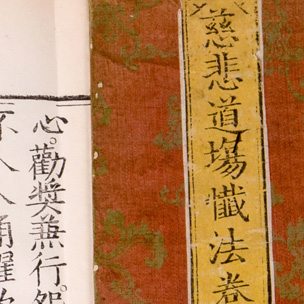 慈悲道場懺法卷
心。勸獎兼行。怨